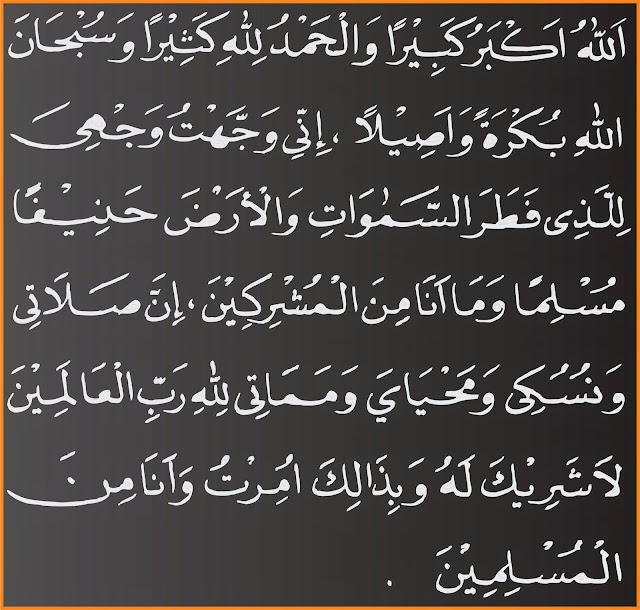 اَللّٰهُ اَكْبَرُ كَبِيْرًا وَالْحَمْدُ لِلّٰهِ كَثِيْرًا وَسُبْحَانَ
اللّٰهِ بُكْرَةً وَاَصِيْلًا ، اِنِّي وَجَّهْتُ وَجْهِيَ
لِلَّذِى فَطَرَ السَّمٰوَاتِ وَالْأَرْضَ حَنِيْفًا
مُسْلِمًا وَمَا اَنَا مِنَ الْمُشْرِكِيْنَ ، اِنَّ صَلَاتِى
وَنُسُكِى وَمَحْيَايَ وَمَمَاتِى لِلّٰهِ رَبِّ الْعَالَمِيْنَ
لَا شَرِيْكَ لَهُ وَبِذَالِكَ اُمِرْتُ وَاَنَا مِنَ
الْمُسْلِمِيْنَ .